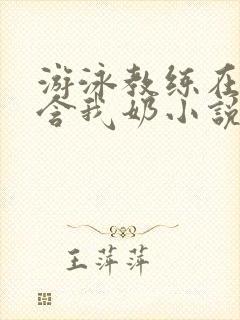 游泳教练在
含我奶小说
王萍萍